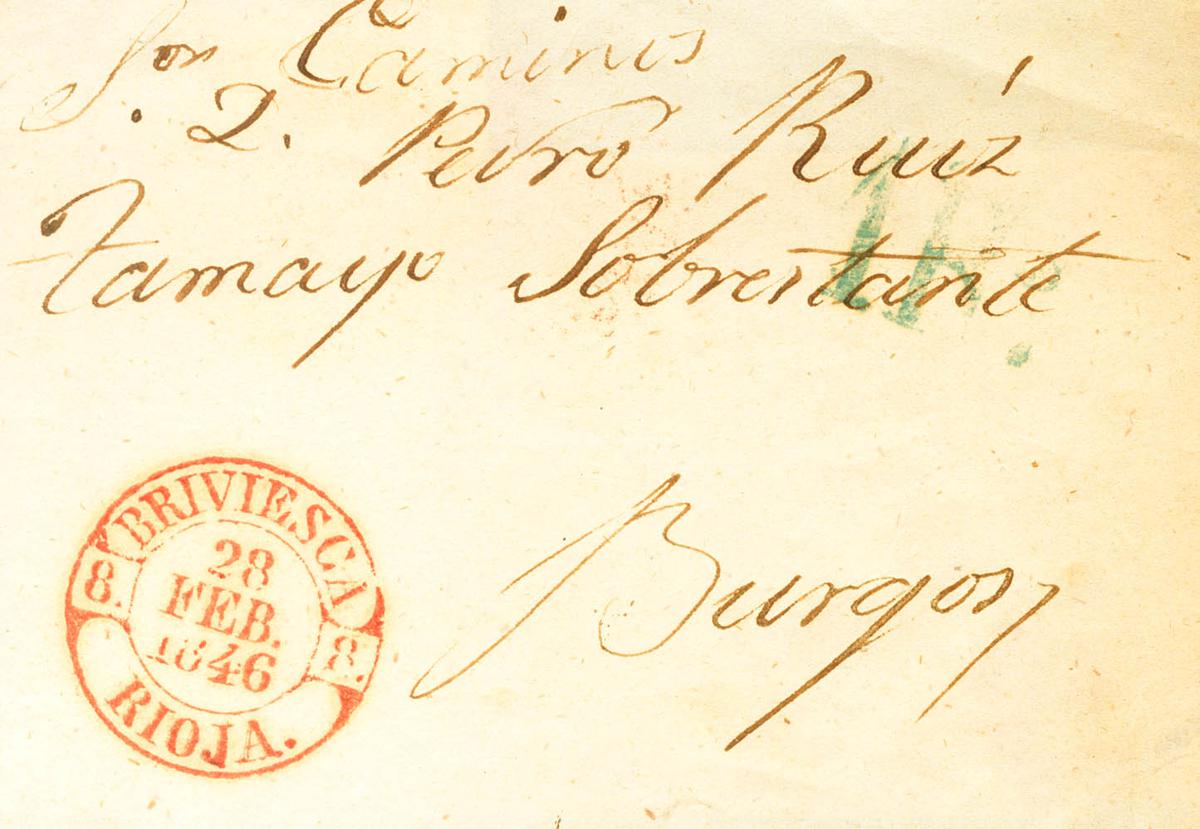 Sor Caminos
S. D. Pedro Ruíz
Tamayo Sobrestante
1R.
Burgos
BRIVIESCA
8. 8.
28
FEB.
1846
RIOJA.